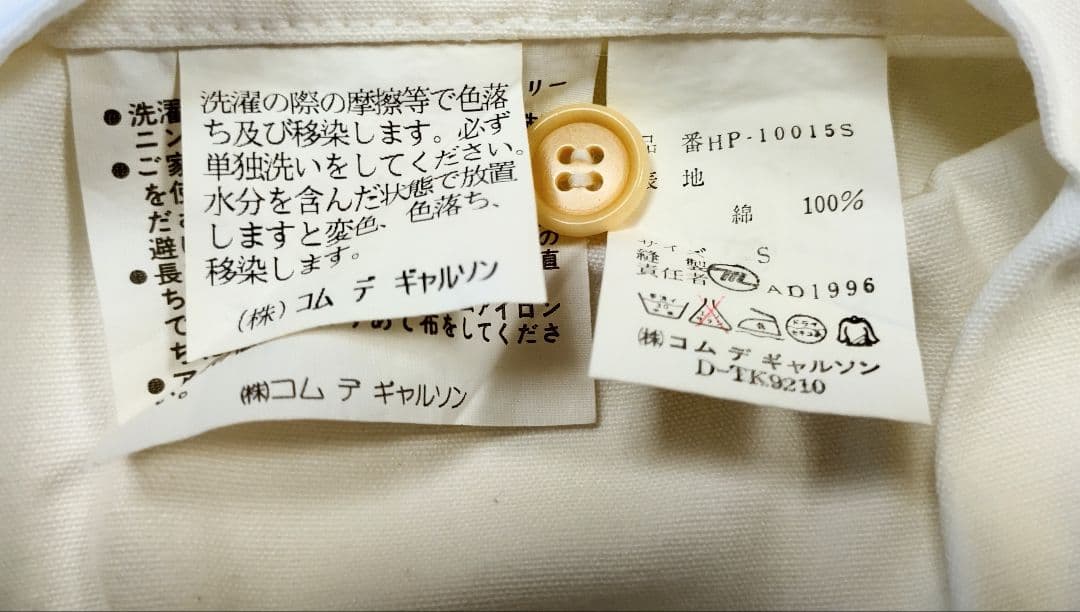 洗濯の際の摩擦等で色落
ち及び移染します。必ず
単独洗いをしてください。
水分を含んだ状態で放置
しますと変色、色落ち、
移染します。
(株)コム デ ギャルソン
● 洗濯
ニン
● ご家
を使
だ
避
● 長
ち
て
ち
● ア
い。
リー
の
直
アイロン
めて布をしてくださ
(株)コム デ ギャルソン
品 番HP-10015S
表 地
綿 100%
サイズ S
縫製
責任者 AD1996
(株)コム デ ギャルソン
D-TK9210